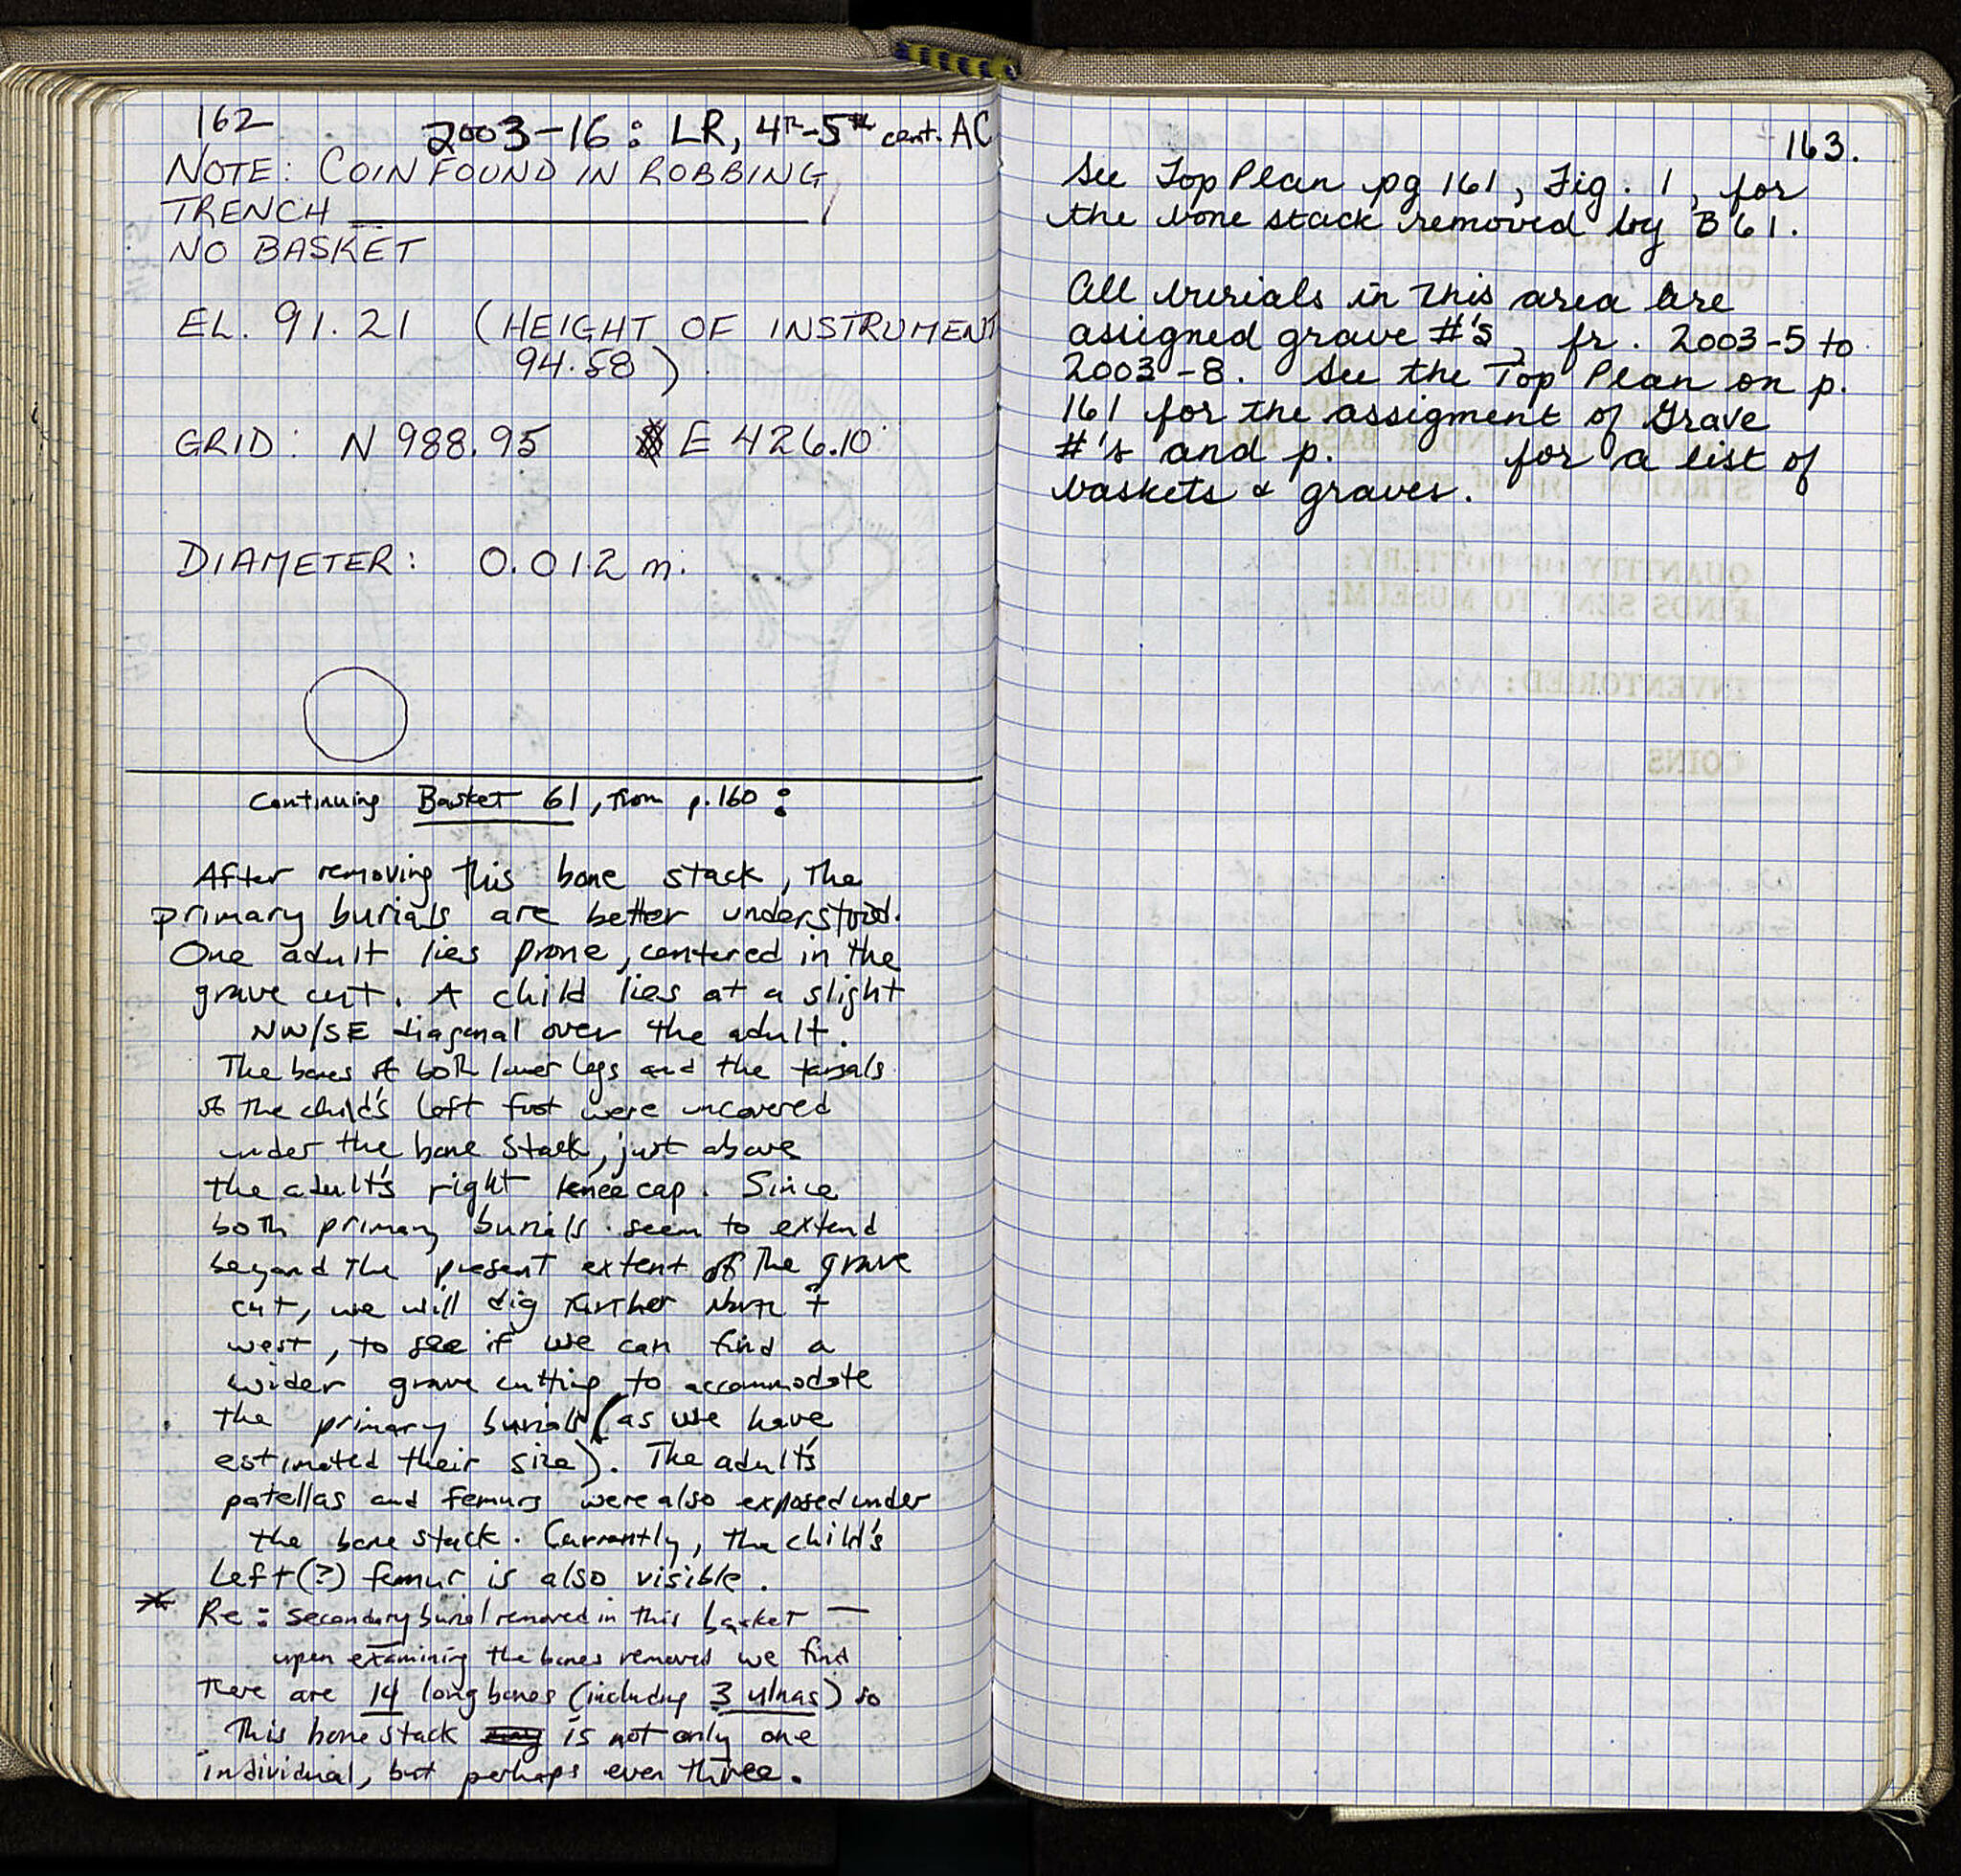 162
2003-16: LR, 4th-5th cent. AC
NOTE: COIN FOUND IN ROBBING
TRENCH
NO BASKET
EL. 91.21 (HEIGHT OF INSTRUMENT
94.58)
GRID: N 988.95 E 426.10
DIAMETER: 0.012 m.
Continuing Basket 61, from p.160:
After removing this bone stack, the
primary burials are better understood.
One adult lies prone, centered in the
grave cut. A child lies at a slight
NW/SE diagonal over the adult.
The bones of both lower legs and the tarsals
of the child's left foot were uncovered
under the bone stack, just above
the adult's right kneecap. Since
both primary burials seem to extend
beyond the present extent of the grave
cut, we will dig further North +
west, to see if we can find a
wider grave cutting to accommodate
the primary burials (as we have
estimated their size). The adult's
patellas and femurs were also exposed under
the bone stack. Currently, the child's
left(?) femur is also visible.
* Re: secondary burial removed in this basket —
upon examining the bones removed we find
there are 14 long bones (including 3 ulnas) so
this bone stack is not only one
individual, but perhaps even three.
163.
See Top Plan pg 161, Fig. 1, for
the bone stack removed by B61.
All burials in this area are
assigned grave #'s, fr. 2003-5 to
2003-8. See the Top Plan on p.
161 for the assigment of Grave
#'s and p. for a list of
baskets & graves.